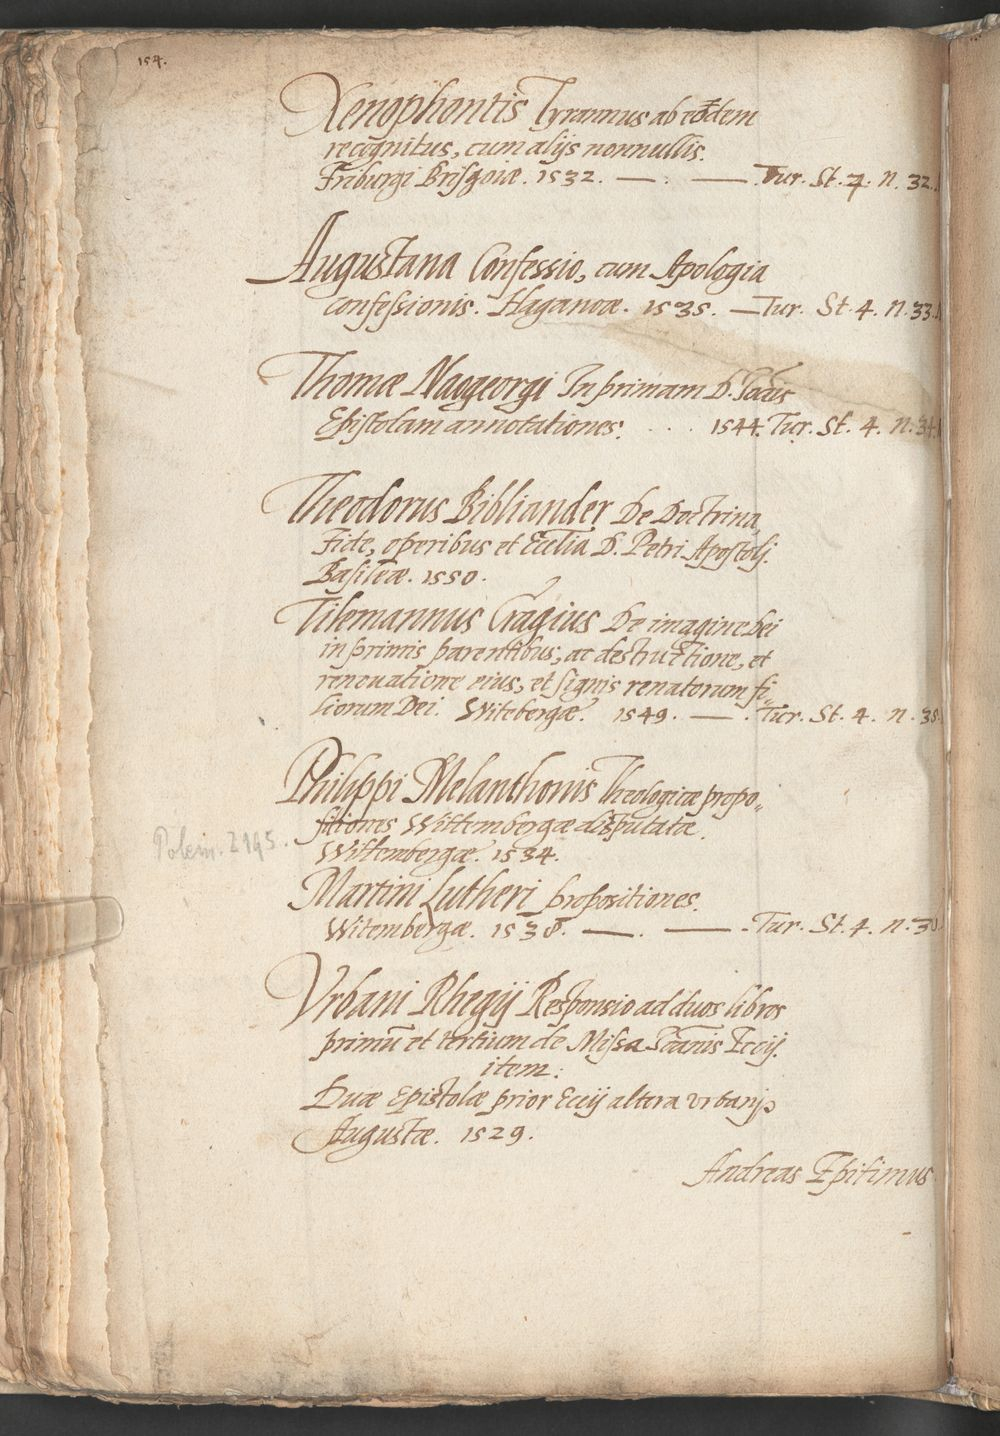 154.
Xenophontis Tyrannus ab eodem
recognitus, cum alijs nonnullis.
Friburgi Brisgoiæ. 1532. — . — . Tur. St. 4. N. 32.
Augustana Confessio, cum Apologia
confessionis. Haganoæ. 1535. — Tur. St. 4. N. 33.
Thomæ Naogeorgi In primam D. Ioãis
Epistolam annotationes. . . . 1544. Tur. St. 4. N. 34.
Theodorus Bibliander De Doctrina,
Fide, operibus et Ecclia D. Petri Apostoli.
Basileæ. 1550.
Tilemannus Cragius De imagine Dei
in primis parentibus, ac destructione, et
renouatione eius, et signis renatorum fi„
liorum Dei. Witebergæ. 1549. — . Tur. St. 4. N. 35.
Philippi Melanthonis Theologicæ propo„
sitiones Wittembergæ disputatæ.
Wittembergæ. 1534.
Polem. 2195.
Martini Lutheri propositiones.
Witembergæ. 1538. — . — . Tur. St. 4. N.
Vrbani Rhegij Responsio ad duos libros
primũ et tertium de Missa Ioãnis Eccij.
item:
Duæ Epistolæ prior Eccij altera vrbanij
Augustæ. 1529.
Andreas Epitimus